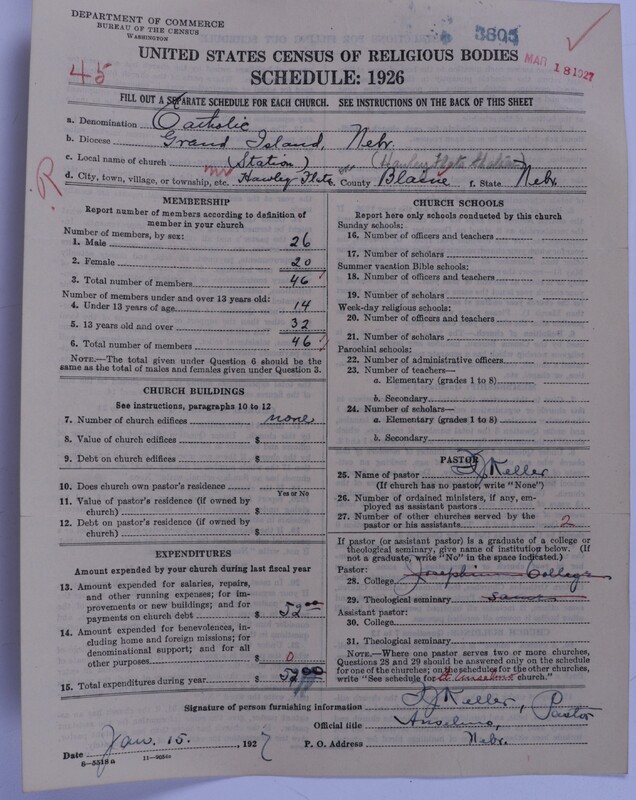 DEPARTMENT OF COMMERCE
BUREAU OF THE CENSUS
WASHINGTON
3605
MAR 18 1927
45
UNITED STATES CENSUS OF RELIGIOUS BODIES
SCHEDULE: 1926
FILL OUT A SEPARATE SCHEDULE FOR EACH CHURCH. SEE INSTRUCTIONS ON THE BACK OF THIS SHEET
a. Denomination Catholic
b. Diocese Grand Island, Nebr.
c. Local name of church (Station) (Hawley Flats Station)
d. City, town, village, or township, etc. Hawley Flats County Blaine f. State Nebr.
R
MEMBERSHIP
Report number of members according to definition of member in your church
Number of members, by sex:
1. Male 26
2. Female 20
3. Total number of members 46
Number of members under and over 13 years old:
4. Under 13 years of age 14
5. 13 years old and over 32
6. Total number of members 46
NOTE.—The total given under Question 6 should be the same as the total of males and females given under Question 3.
CHURCH BUILDINGS
See instructions, paragraphs 10 to 12
7. Number of church edifices none
8. Value of church edifices $
9. Debt on church edifices $
10. Does church own pastor's residence
Yes or No
11. Value of pastor's residence (if owned by church) $
12. Debt on pastor's residence (if owned by church) $
EXPENDITURES
Amount expended by your church during last fiscal year
13. Amount expended for salaries, repairs, and other running expenses; for improvements or new buildings; and for payments on church debt $ 52 00
14. Amount expended for benevolences, including home and foreign missions; for denominational support; and for all other purposes $ 0
15. Total expenditures during year $ 52 00
CHURCH SCHOOLS
Report here only schools conducted by this church
Sunday schools:
16. Number of officers and teachers
17. Number of scholars
Summer vacation Bible schools:
18. Number of officers and teachers
19. Number of scholars
Week-day religious schools:
20. Number of officers and teachers
21. Number of scholars
Parochial schools:
22. Number of administrative officers
23. Number of teachers—
a. Elementary (grades 1 to 8)
b. Secondary
24. Number of scholars—
a. Elementary (grades 1 to 8)
b. Secondary
PASTOR
25. Name of pastor Keller
(If church has no pastor, write "None")
26. Number of ordained ministers, if any, employed as assistant pastors
27. Number of other churches served by the pastor or his assistants 2
If pastor (or assistant pastor) is a graduate of a college or theological seminary, give name of institution below. (If not a graduate, write "No" in the space indicated.)
Pastor:
28. College Josephinum College
29. Theological seminary same
Assistant pastor:
30. College
31. Theological seminary
NOTE.—Where one pastor serves two or more churches, Questions 28 and 29 should be answered only on the schedule for one of the churches; on the schedules for the other churches, write "See schedule for Anselmo church."
Signature of person furnishing information Keller, Pastor
Official title Anselmo,
Date Jan. 15, 1927 P. O. Address Nebr.
8—5519a 11—9054a